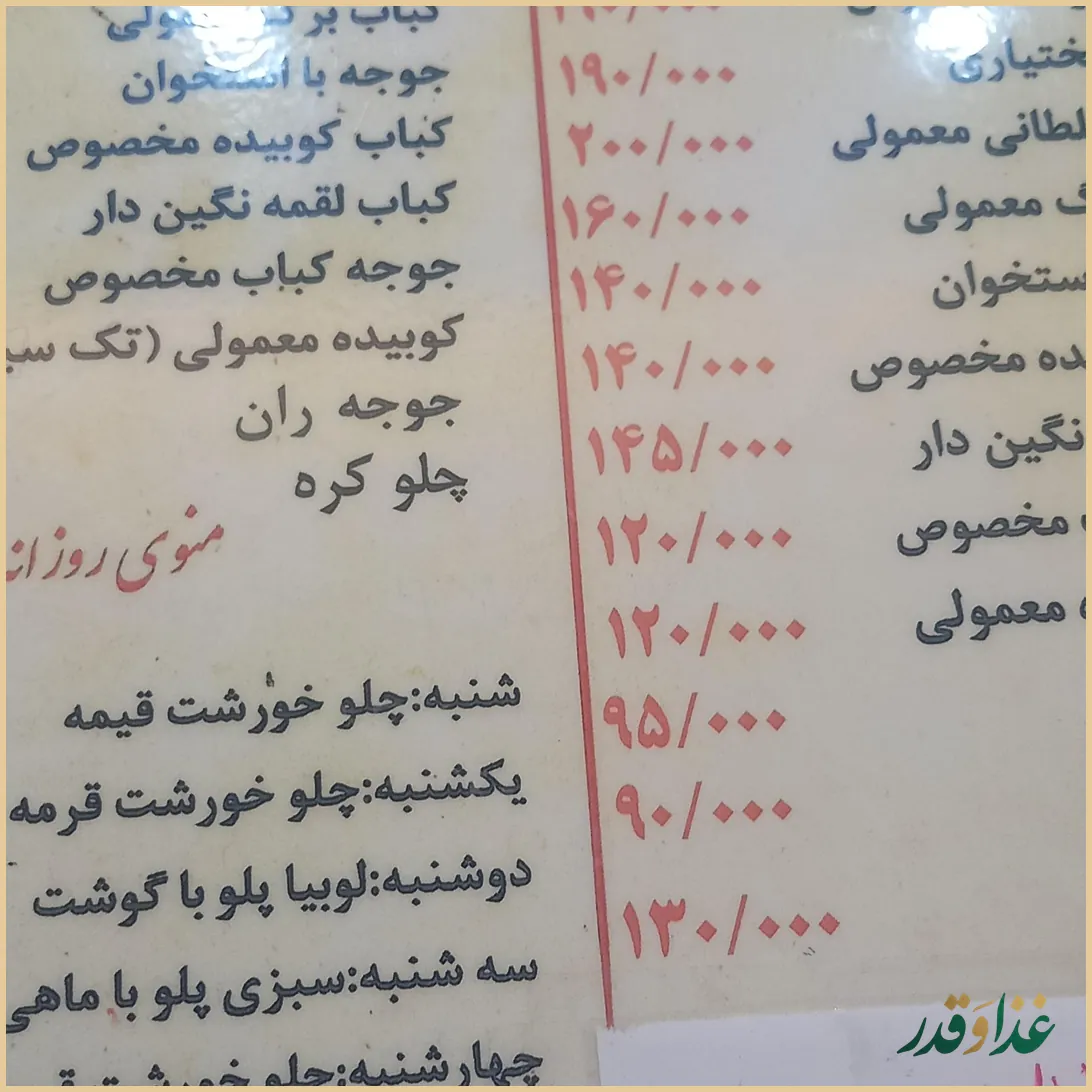 ختیاری ۱۹۰/۰۰۰
لطانی معمولی ۲۰۰/۰۰۰
گ معمولی ۱۶۰/۰۰۰
ستخوان ۱۴۰/۰۰۰
ده مخصوص ۱۴۰/۰۰۰
نگین دار ۱۴۵/۰۰۰
مخصوص ۱۲۰/۰۰۰
ه معمولی ۱۲۰/۰۰۰
۹۵/۰۰۰
۹۰/۰۰۰
۱۳۰/۰۰۰
کباب
جوجه با استخوان
کباب کوبیده مخصوص
کباب لقمه نگین دار
جوجه کباب مخصوص
کوبیده معمولی (تک سی
جوجه ران
چلو کره
منوی روزانه
شنبه:چلو خورشت قیمه
یکشنبه:چلو خورشت قرمه
دوشنبه:لوبیا پلو با گوشت
سه شنبه:سبزی پلو با ماهی
چهارشنبه:چلو خورشت
غذا و قدر